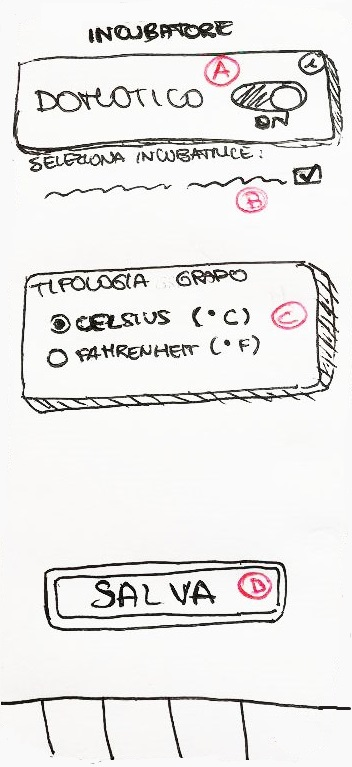 INCUBATORE
A
i
DOMOTICO
ON
SELEZIONA INCUBATRICE:
B
TIPOLOGIA GRADO
CELSIUS (°C) C
FAHRENHEIT (°F)
SALVA D